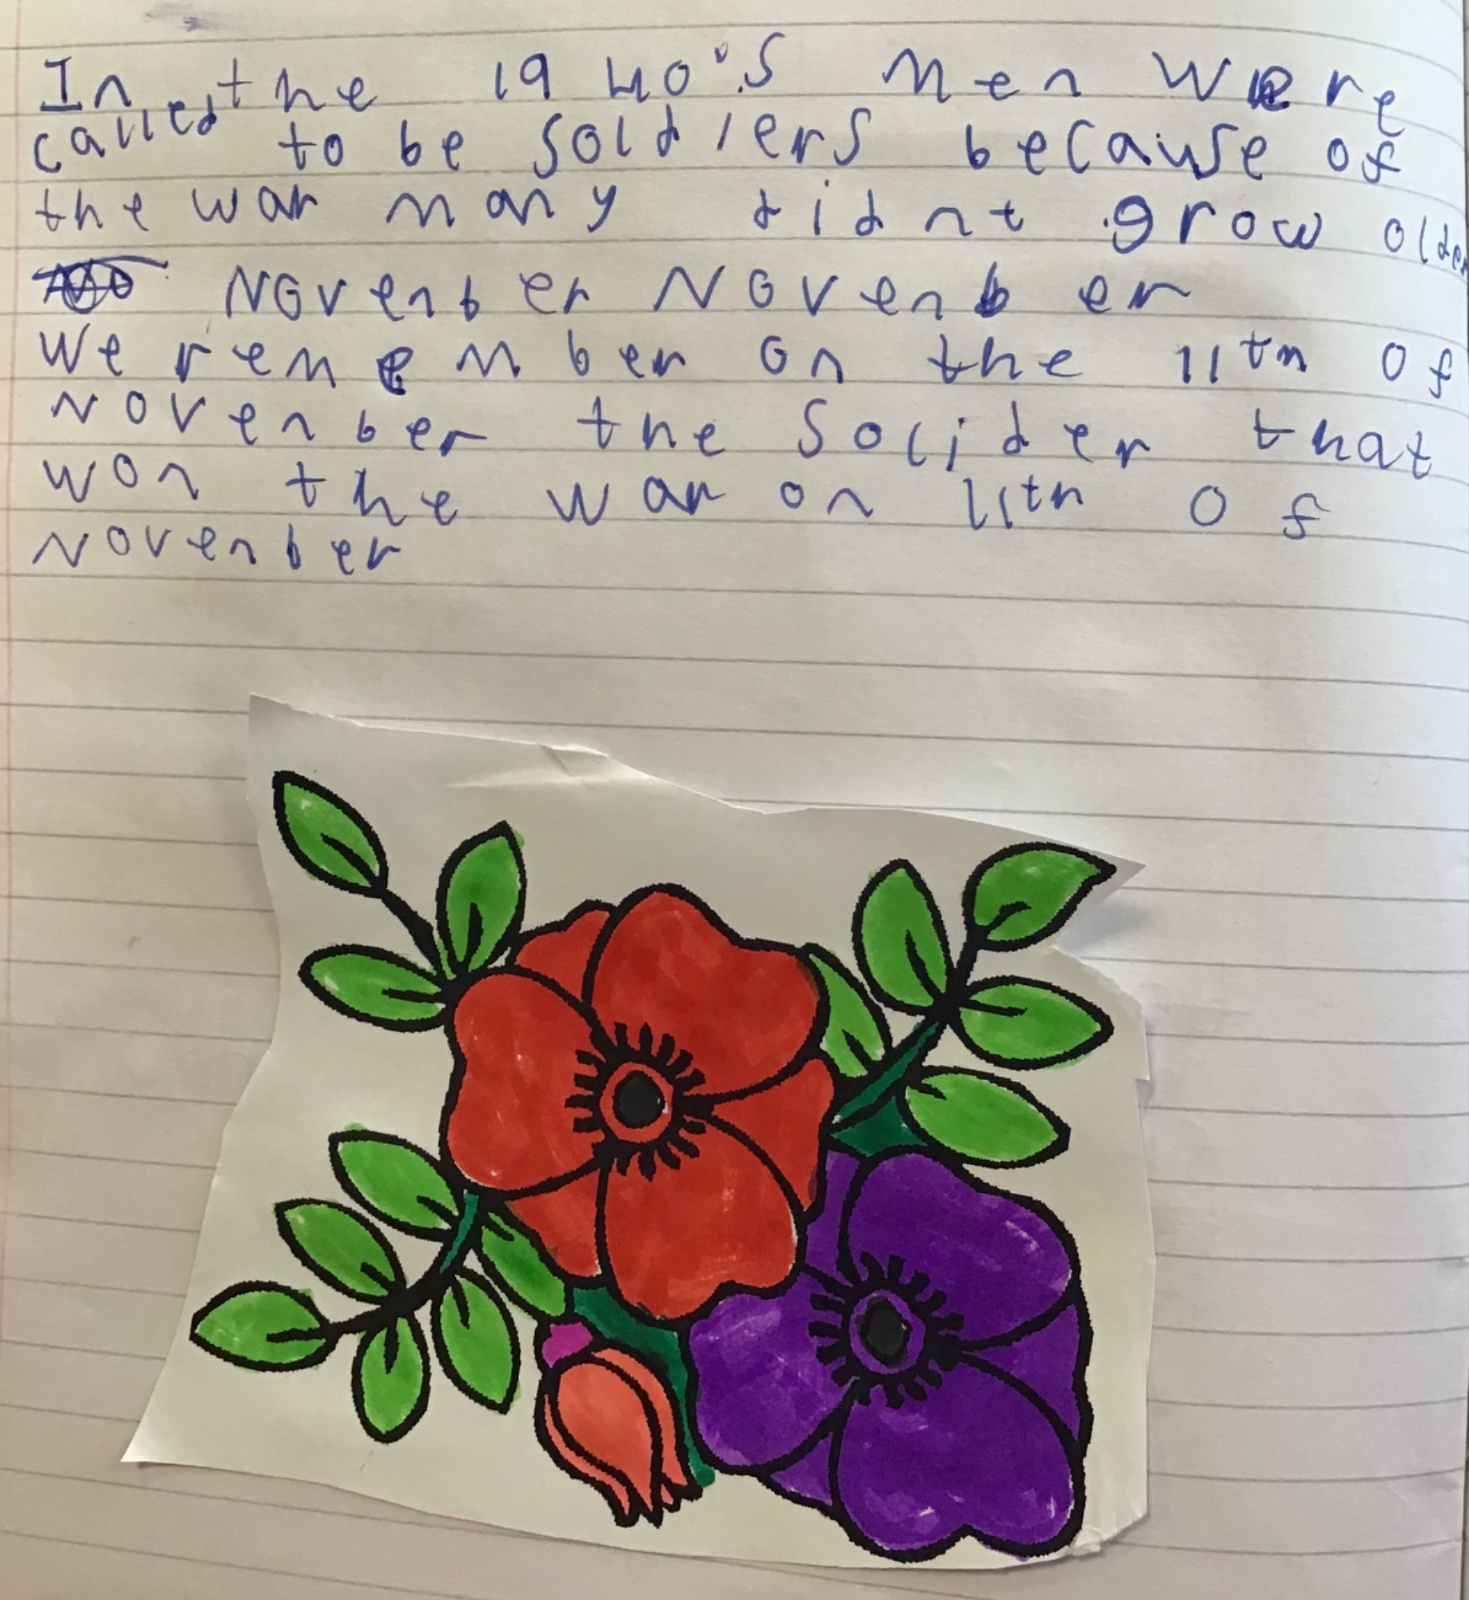 In the 1940's Men were
called to be Soldiers because of
the war many didnt grow older
Novenber Novenber
We renember on the 11th of
Novenber the Solider that
won the war on 11th of
Novenber